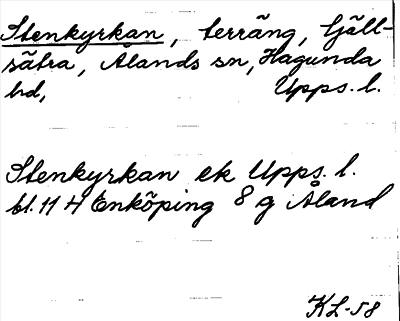 Stenkyrkan, terräng, Gjäll-
sätra, Ålands sn, Hagunda
hd, Upps. l.
Stenkyrkan ek Upps. l.
bl. 11 H Enköping 8 g Åland
KL-58